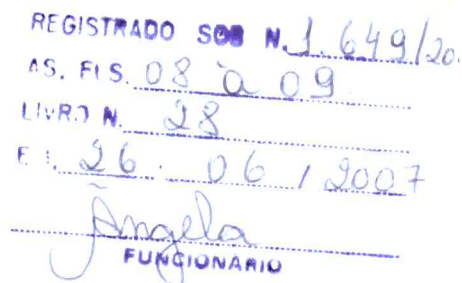 REGISTRADO SOB N. 1.649/20
AS. FLS. 08 à 09
LIVRO N. 28
E I. 26. 06 / 2007
Ângela
FUNCIONÁRIO